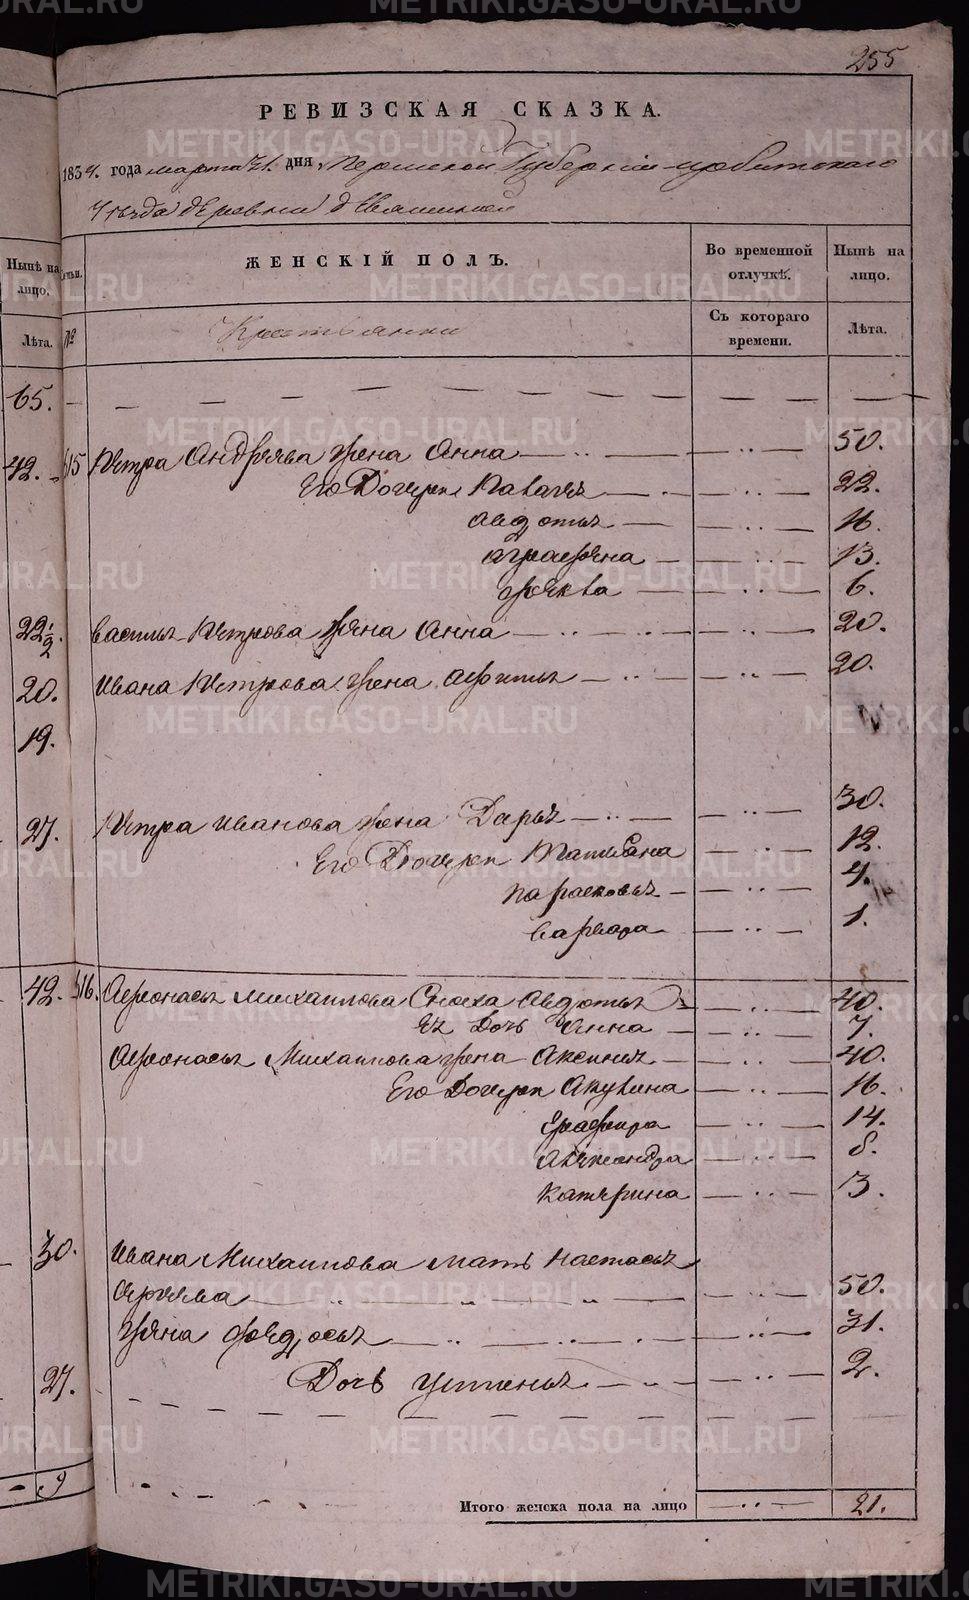 255
РЕВИЗСКАЯ СКАЗКА.
1834. года марта 21. дня, Пермской Губернии ирбитскаго
Уезда деревни
Ныне на лицо.
семьи.
ЖЕНСКІЙ ПОЛЪ.
Во временной отлучкѣ.
Нынѣ на лицо.
Лѣта.
№
Крестьянки
Съ котораго времени.
Лѣта.
65.
42. 615 Петра Андреява жена Анна 50.
Его Дочери Палагея 22.
Авдотья 16.
аграфена 13.
фекла 6.
22 1/2. василья Петрова жена Анна 20.
20. Ивана Петрова жена Афимья 20.
19.
27. Петра Иванова жена Дарья 30.
Его Дочери Татьяна 12.
парасковья 4.
варвара 1.
42. 616. Афонасья михаилова Сноха Авдотья 40.
Ея Дочь Анна 7.
Афонасья Михаилова жена Аксинья 40.
Его Дочери Акулина 16.
14.
Александра 8.
Катерина 3.
30. Ивана Михаилова мать настасья
50.
жена федосья 31.
27. Дочь устенья 2.
9
Итого женска пола на лицо 21.
METRIKI.GASO-URAL.RU